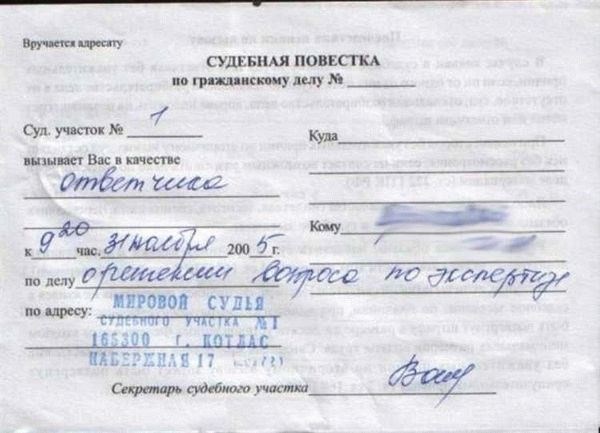 Вручается адресату
СУДЕБНАЯ ПОВЕСТКА
по гражданскому делу №
Суд. участок № 1
Куда
вызывает Вас в качестве
ответчика
Кому
к 9 20 час. 31 ноября 2005 г.
по делу о решении вопроса по экспертизе
по адресу:
МИРОВОЙ СУДЬЯ
СУДЕБНОГО УЧАСТКА №1
165300 г. КОТЛАС
НАБЕРЕЖНАЯ 17
Секретарь судебного участка